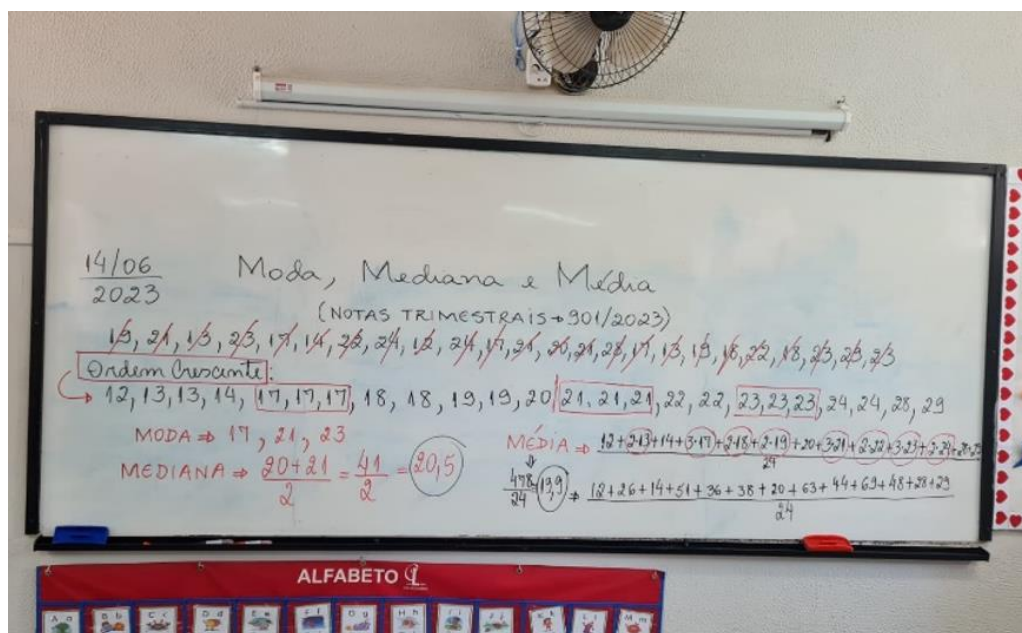 14/06
2023
Moda, Mediana e Média
(NOTAS TRIMESTRAIS → 901/2023)
19, 21, 13, 23, 17, 14, 22, 24, 12, 24, 17, 21, 20, 21, 28, 17, 13, 19, 18, 22, 18, 23, 29, 23
Ordem Crescente:
→ 12, 13, 13, 14, 17, 17, 17, 18, 18, 19, 19, 20, 21, 21, 21, 22, 22, 23, 23, 23, 24, 24, 28, 29
MODA ⇒ 17, 21, 23
MEDIANA ⇒ 20+21/2 = 41/2 = 20,5
MÉDIA ⇒ 12+2·13+14+3·17+2·18+2·19+20+3·21+2·22+3·23+2·24+28+29
24
478/24 = 19,9 ⇒ 12+26+14+51+36+38+20+63+44+69+48+28+29
24
ALFABETO